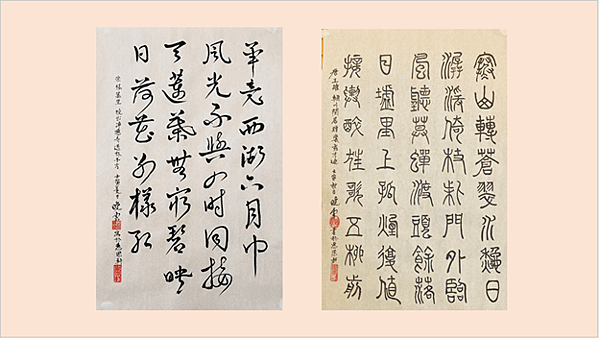 畢竟西湖六月中
風光不與四時同接
天蓮葉無窮碧映
日荷花別樣紅
宋楊萬里曉出淨慈寺送林子方 壬寅夏月曉雲
寒山轉蒼翠秋水日
潺湲倚杖柴門外臨
風聽暮蟬渡頭餘落
日墟里上孤煙復值
接輿醉狂歌五柳前
唐王維輞川閒居贈裴秀才迪 壬寅 曉雲